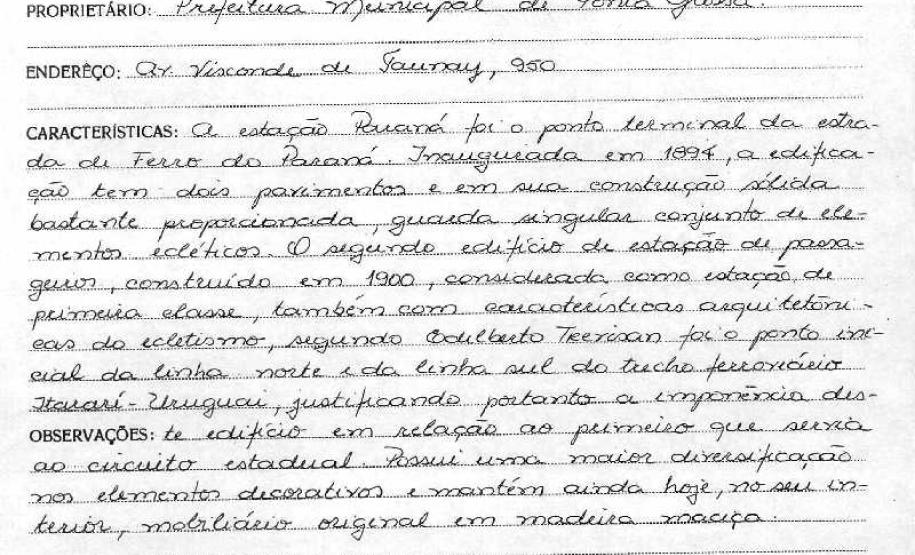 PROPRIETÁRIO: Prefeitura Municipal de Ponta Grossa.
ENDERÊÇO: Av. Visconde de Taunay, 950
CARACTERÍSTICAS: A estação Paraná foi o ponto terminal da estra-
da de Ferro do Paraná. Inaugurada em 1894, a edifica-
ção tem dois pavimentos e em sua construção sólida
bastante proporcionada, guarda singular conjunto de ele-
mentos ecléticos. O segundo edifício de estação de passa-
geiros, construído em 1900, considerada como estação de
primeira classe, também com características arquitetôni-
cas do ecletismo, segundo Odilberto Trevisan foi o ponto ini-
cial da linha norte e da linha sul do trecho ferroviário
Itararé-Uruguai, justificando portanto a imponência des-
OBSERVAÇÕES: te edifício em relação ao primeiro que servia
ao circuito estadual. Possui uma maior diversificação
nos elementos decorativos e mantém ainda hoje, no seu in-
terior, mobiliário original em madeira maciça.